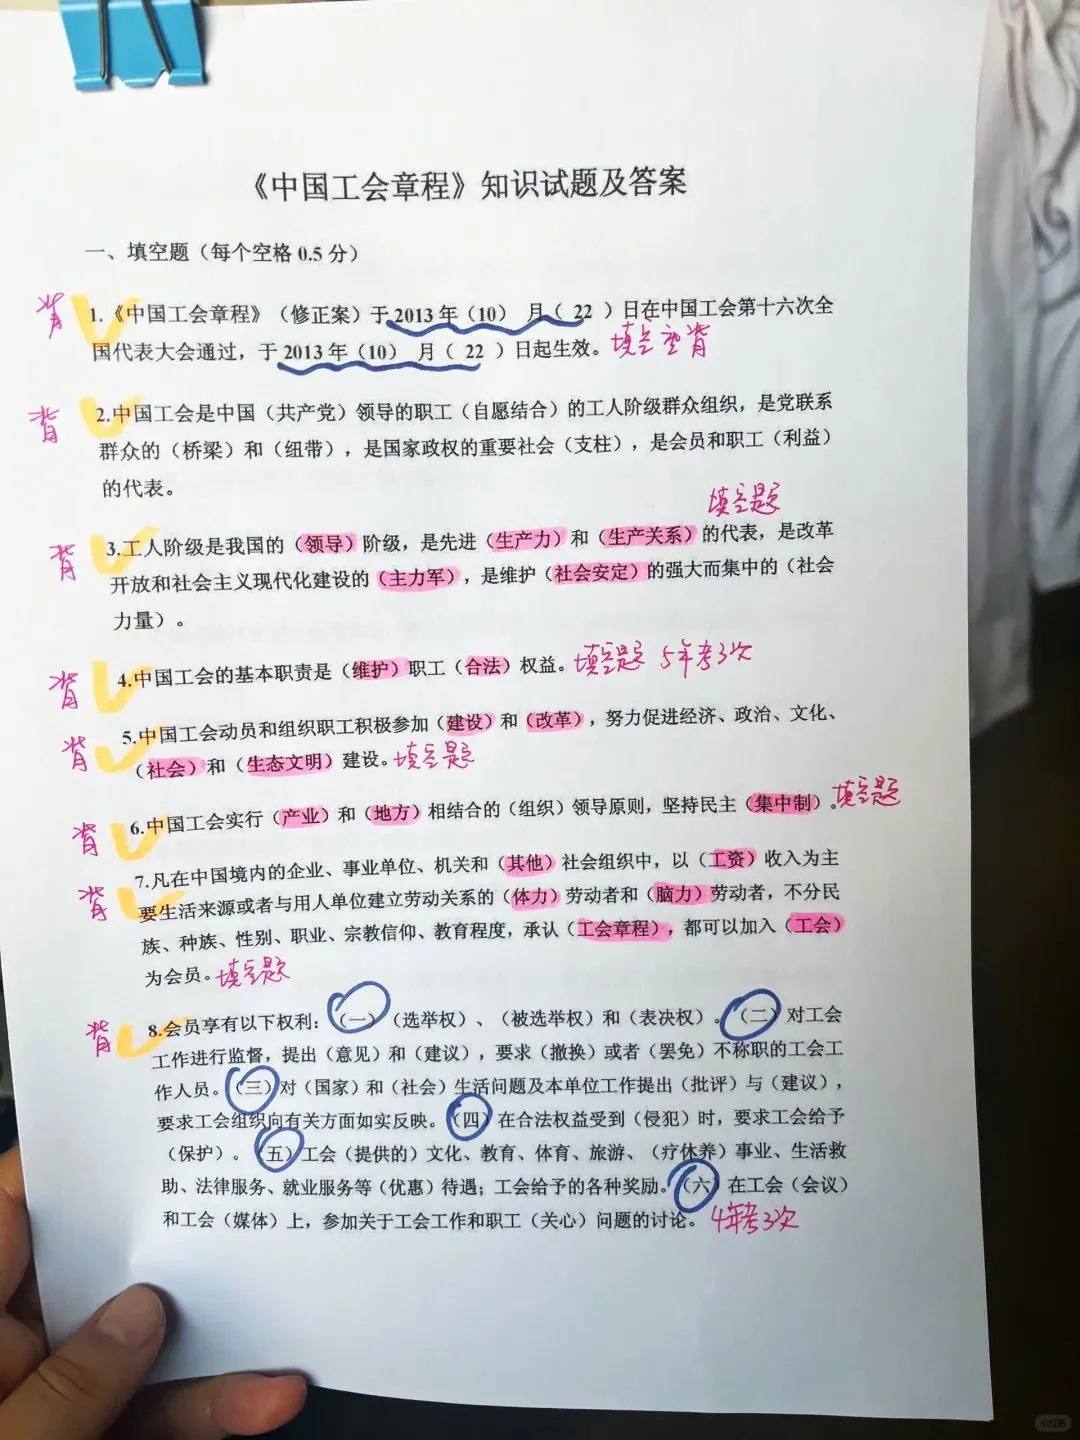 《中国工会章程》知识试题及答案
一、填空题（每个空格 0.5 分）
背
1.《中国工会章程》（修正案）于 2013 年（10） 月（ 22 ）日在中国工会第十六次全
国代表大会通过，于 2013 年（10） 月（ 22 ）日起生效。
填空 背
背
2.中国工会是中国（共产党）领导的职工（自愿结合）的工人阶级群众组织，是党联系
群众的（桥梁）和（纽带），是国家政权的重要社会（支柱），是会员和职工（利益）
的代表。
填空题
背
3.工人阶级是我国的（领导）阶级，是先进（生产力）和（生产关系）的代表，是改革
开放和社会主义现代化建设的（主力军），是维护（社会安定）的强大而集中的（社会
力量）。
背
4.中国工会的基本职责是（维护）职工（合法）权益。填空题 5年考3次
背
5.中国工会动员和组织职工积极参加（建设）和（改革），努力促进经济、政治、文化、
（社会）和（生态文明）建设。填空题
背
6.中国工会实行（产业）和（地方）相结合的（组织）领导原则，坚持民主（集中制）。填空题
背
7.凡在中国境内的企业、事业单位、机关和（其他）社会组织中，以（工资）收入为主
要生活来源或者与用人单位建立劳动关系的（体力）劳动者和（脑力）劳动者，不分民
族、种族、性别、职业、宗教信仰、教育程度，承认（工会章程），都可以加入（工会）
为会员。填空题
背
8.会员享有以下权利：（一）（选举权）、（被选举权）和（表决权）。（二）对工会
工作进行监督，提出（意见）和（建议），要求（撤换）或者（罢免）不称职的工会工
作人员。（三）对（国家）和（社会）生活问题及本单位工作提出（批评）与（建议），
要求工会组织向有关方面如实反映。（四）在合法权益受到（侵犯）时，要求工会给予
（保护）。（五）工会（提供的）文化、教育、体育、旅游、（疗休养）事业、生活救
助、法律服务、就业服务等（优惠）待遇；工会给予的各种奖励。（六）在工会（会议）
和工会（媒体）上，参加关于工会工作和职工（关心）问题的讨论。4年考3次
小红书